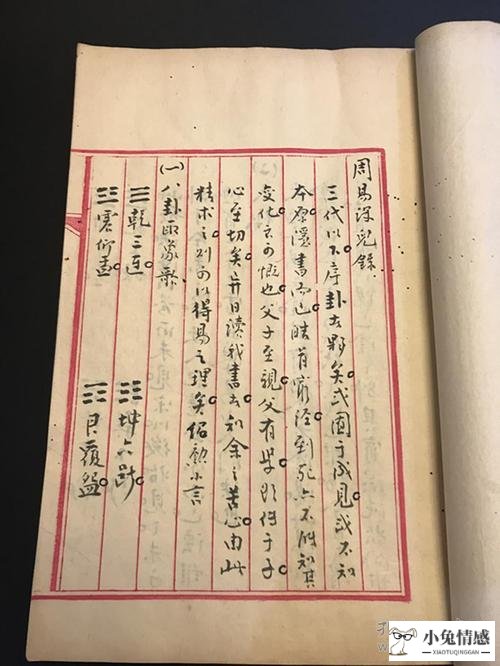 周易課兒錄
三代以下序卦者夥矣。或囿于成見或不知
本原隱書而已。皓首窮經到死亦不能知其
變化。可慨也。父子至親。父有學欲傳于子。
心至切矣。异日讀我書者知余之苦心由此
精求之。則可以得易之理矣。小言
(一)八卦取象歌。
☰乾三連。 ☷坤六斷。
☳震仰盂。 ☶艮覆盌。
小兔情感
XIAOTUQINGGAN